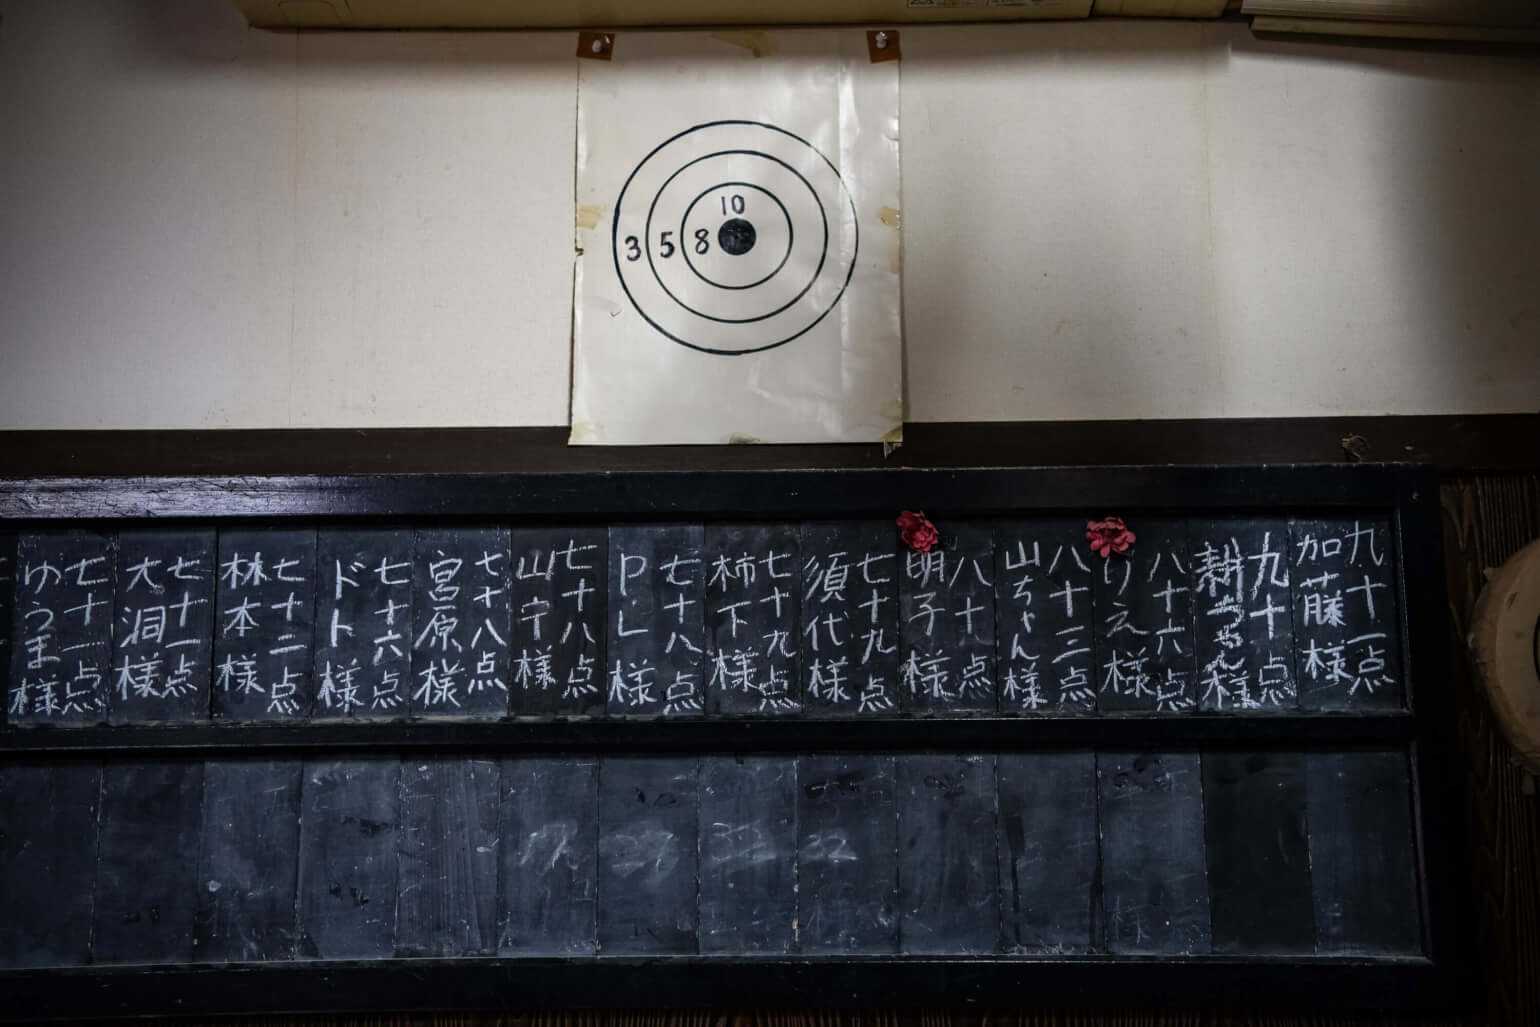 10
3 5 8
九十一点
加藤様
九十点
耕ちゃん様
八十六点
りえ様
八十三点
山ちゃん様
八十点
明子様
七十九点
須代様
七十九点
柿下様
七十八点
P.L様
七十八点
山宁様
七十八点
宮原様
七十六点
ドト様
七十二点
林本様
七十一点
大洞様
七十一点
ゆうま様